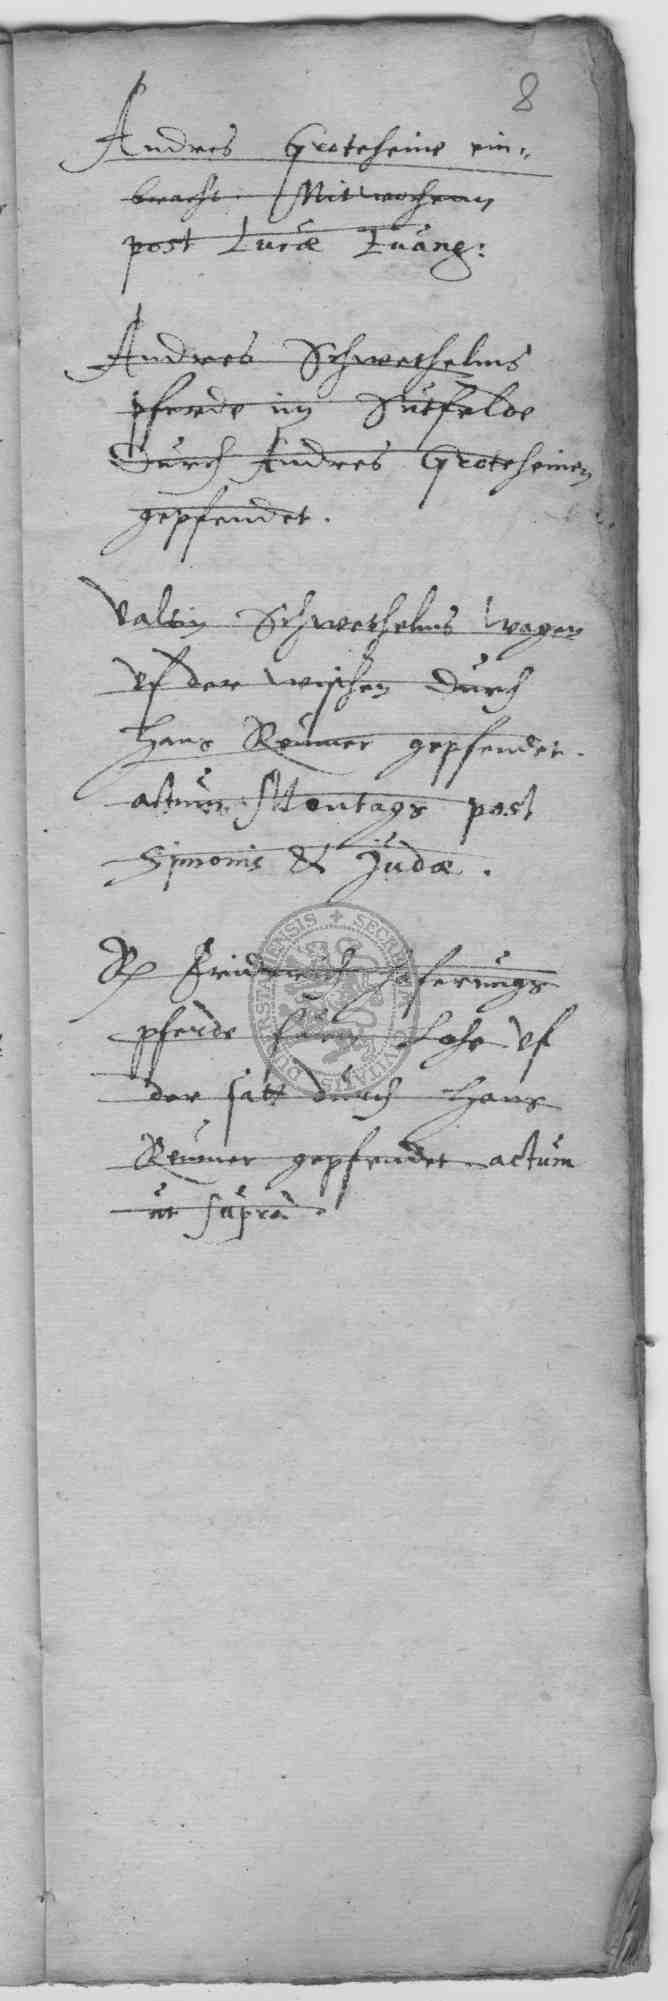 8
Andres Groteheine ein-
bracht. Mitwochenn
post Lucæ Euang:
Andres Schwethelms
pferde im Sutfelde
Durch Andres Groteheinen
gepfendet.
Valtin Schwethelms wagen
vf der wischen durch
Hans Reumer gepfendet.
actum Montags post
Simonis & Judæ.
Fridrich Hoferungs
pferde Lohe vf
der satt durch Hans
Reumer gepfendet actum
ut supra.
SECRETA CIVITATIS DUDERSTATENSIS